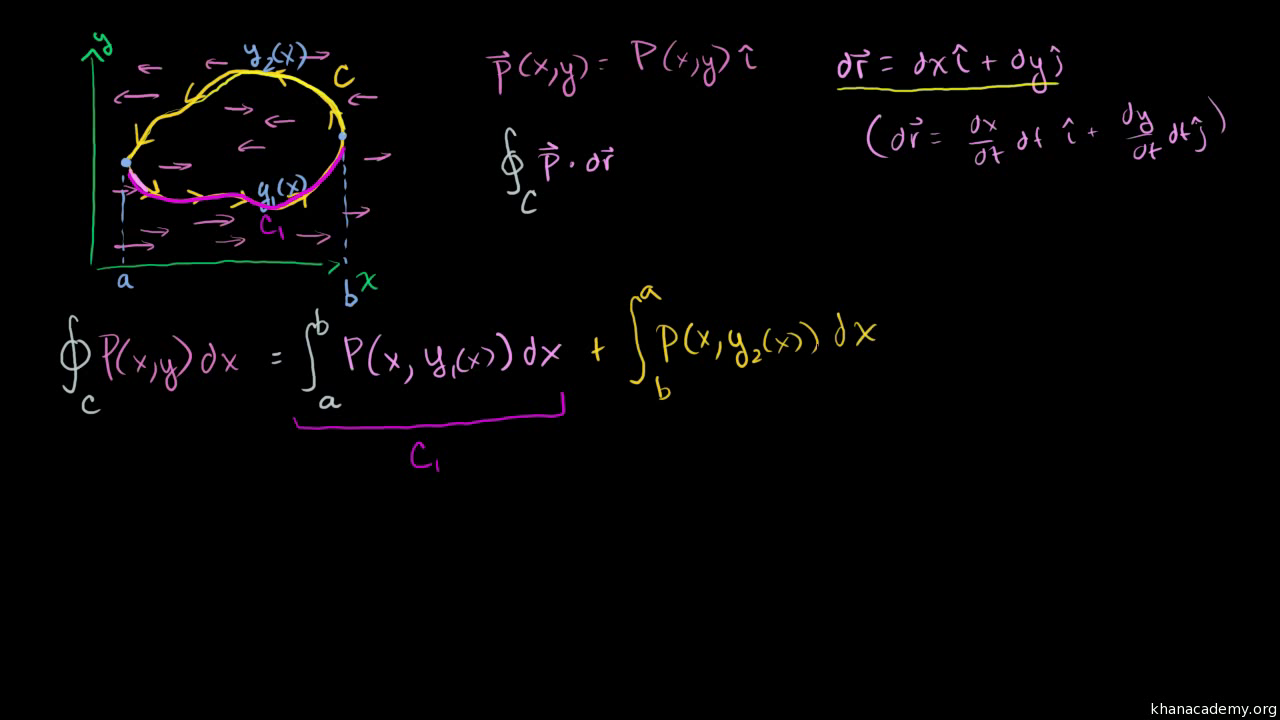 y
y₂(x)
C
y₁(x)
C₁
a
b
x
P⃗(x,y) = P(x,y) î
dr⃗ = dx î + dy ĵ
(dr⃗ = dx/dt dt î + dy/dt dt ĵ)
∮_C P⃗ · dr⃗
∮_C P(x,y) dx = ∫_a^b P(x, y₁(x)) dx + ∫_b^a P(x, y₂(x)) dx
C₁
khanacademy.org